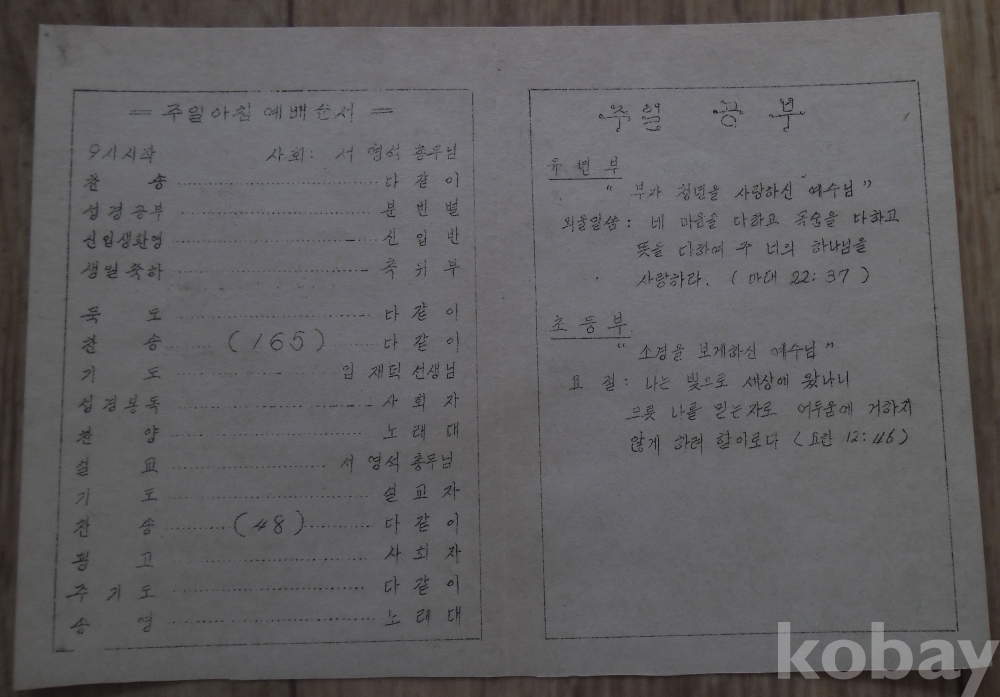 = 주일아침 예배순서 =
9시시작 사회: 서 영석 총무님
찬 송 다 같 이
성경공부 분 반 별
신입생환영 신 입 반
생일축하 축 하 부
묵 도 다 같 이
찬 송 (165) 다 같 이
기 도 임 재덕 선생님
성경봉독 사 회 자
찬 양 노 래 대
설 교 서 영석 총무님
기 도 설 교 자
찬 송 (48) 다 같 이
광 고 사 회 자
주 기 도 다 같 이
송 영 노 래 대
주일 공부
유 년 부
" 부자 청년을 사랑하신 예수님 "
외울말씀 : 네 마음을 다하고 목숨을 다하고
뜻을 다하여 주 너의 하나님을
사랑하라. ( 마태 22 : 37 )
초 등 부
" 소경을 보게하신 예수님 "
요 절 : 나는 빛으로 세상에 왔나니
므릇 나를 믿는자로 어두움에 거하지
않게 하려 함이로다 ( 요한 12 : 46 )
kobay